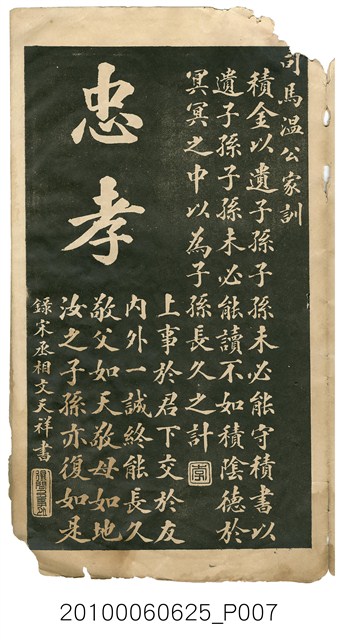 司馬温公家訓
積金以遺子孫子孫未必能守積書以
遺子孫子孫未必能讀不如積陰德於
冥冥之中以為子孫長久之計
忠孝
上事於君下交於友
內外一誠終能長久
敬父如天敬母如地
汝之子孫亦復如是
錄宋丞相文天祥書
20100060625_P007